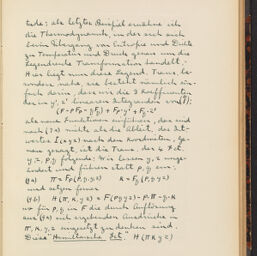 tade; als letztes Beispiel erwähne ich
die Thermodynamik, in der sich
beim Übergang von Entropie und Dichte
zu Temperatur und Druck genau um die
Legendresche Transformation handelt.
Hier liegt nun diese Legend. Transf. be-
sonders nahe, sie besteht nämlich ein-
fach darin, dass wir die 3 Koeffizienten
des in y', z' linearen Integranden von
als neue Funktionen einführen, die sind
nach nichts als die Ableit. des Int-
wertes nach den Koordinaten, ge-
nau gesagt, ist die Trans. des
y, z, p, q folgende: Wir lassen y, z unge-
ändert und führen statt p, q ein:
(9a) π = Fp(p,q,y,z) κ = Fq(p,q,y,z)
und setzen ferner
(9b) H(π,κ,y,z) = F(p,q,y,z) - p·π - q·κ
wo für p, q in F die durch Auflösung
aus (9a) sich ergebenden Ausdrücke in
π, κ, y, z eingesetzt zu denken sind.
Diese "Hamiltonsche Fct." H(π κ y z)